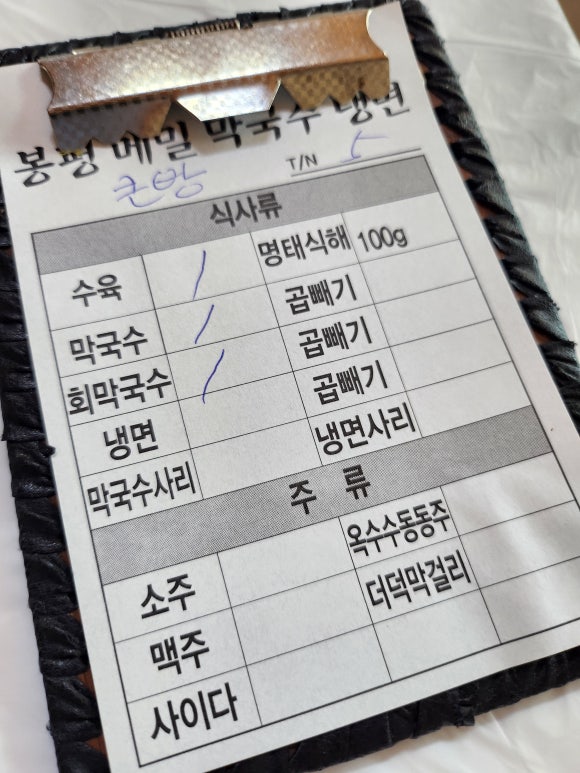 봉평 메밀 막국수 냉면
큰방 T/N 5
식사류
수육 / 명태식해 100g
막국수 / 곱빼기
회막국수 / 곱빼기
냉면 곱빼기
막국수사리 냉면사리
주 류
소주 옥수수동동주
맥주 더덕막걸리
사이다